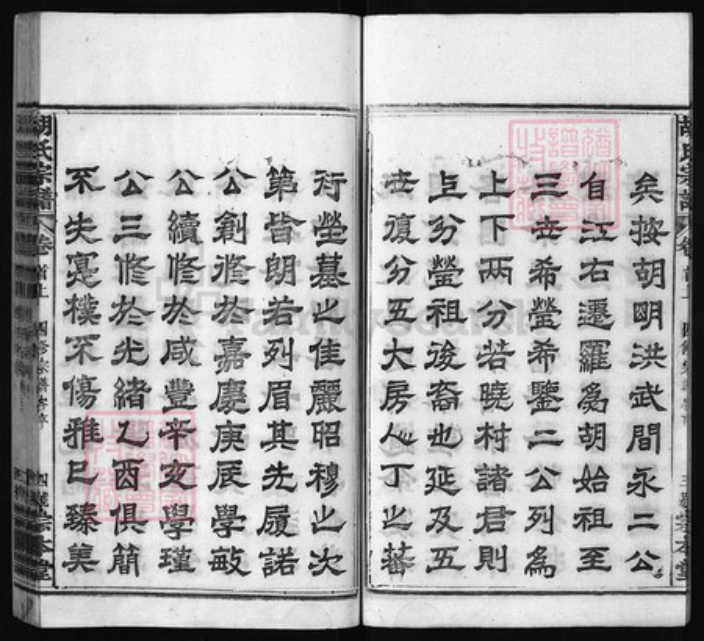 矣按胡明洪武間永二公
自江右遷羅為胡始祖至
三世希瑩希鑒二公列為
上下兩分若曉村諸君則
上分瑩祖後裔也延及五
世復分五大房人丁之蕃
衍塋墓之佳麗昭穆之次
第皆朗若列眉其先履諾
公創修於嘉慶庚辰學敏
公續修於咸豐辛亥學瑾
公三修於光緒乙酉俱簡
不失寔樸不傷雅已臻美
胡氏宗譜
卷首上
四修宗譜
宗本堂